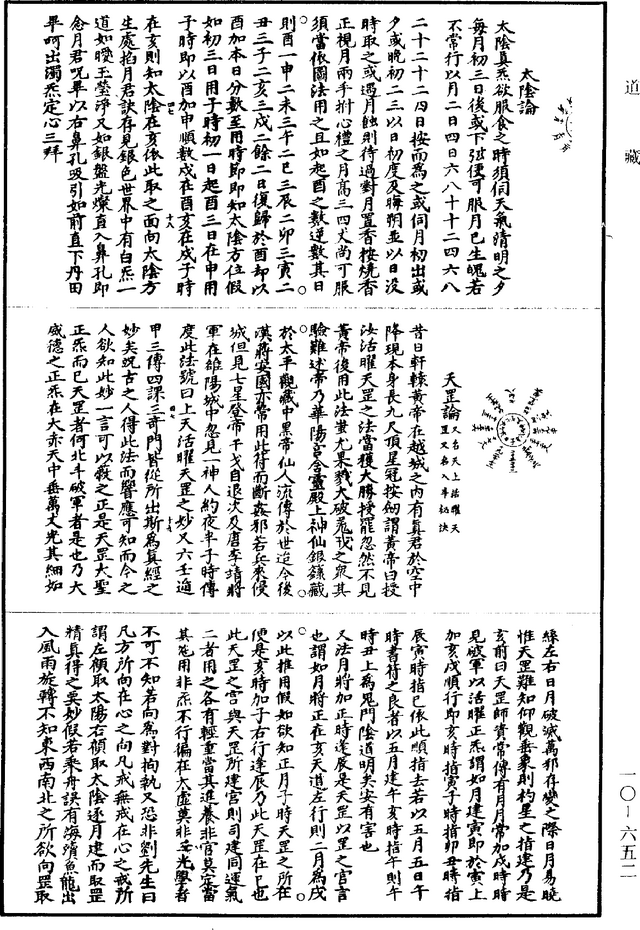 道藏
太陰論
太陰真炁欲服食之時須伺天氣清明之夕
每月初三日後或下弦便可服月已生魄若
不常行以月二日四日六八十十二四六八
二十二十二四日按而為之或伺月初出或
夕或晚初二三以日初度及晦朔並以日沒
時取之或遇月蝕則待過對月置香按燒香
正視月兩手拊心禮之月高三四丈尚可服
須當依圖法用之且如起酉之數逆數其日
則酉一申二未三午二巳三辰二卯三寅二
丑三子二亥三戌二餘二日復歸於酉却以
酉加本日分數至用時節即知太陰方位假
如初三日用子時初一日起酉三日在申用
子時即以酉加申順數戌在酉亥在戌子時
在亥則知太陰在亥依此取之面向太陰方
生處掐月君訣存見銀色世界中有白炁一
道如璎玉瑩淨又如銀盤光燦直入鼻孔即
念月君呪畢以右鼻孔吸引如前直下丹田
畢呵出濁炁定心三拜
天罡論又名天上活曜天罡又名入斗秘訣
昔日軒轅黃帝在越城之內有真君於空中
降現本身長九尺頂星冠按劒謂黃帝曰授
汝活曜天罡之法當獲大勝授罷忽然不見
黃帝後用此法蚩尤果戮大破鬼戎之眾其
驗難述帝乃華陽宮含靈殿上神仙銀鎌藏
於太平觀藏中黑帝仙人流傳於世迄今後
漢蔣安國亦常用此符而斷姦邪若兵來侵
城但見七星登帝干戈自退次及唐李靖將
軍在雒陽城中忽見一神人約夜半子時傳
度此法號曰上天活曜天罡之妙又六壬遁
甲三傳四課三奇門皆從所出斯為真經之
妙矣況古之人得此法而響應可知而今之
人欲知此妙一言可以蔽之正是天罡大聖
正炁而已天罡者何北斗破軍者是也乃大
威德之正炁在大赤天中垂萬丈光其細如
綠左右日月破滅萬邪存變之際日月易曉
惟天罡難知仰觀垂象則杓星之指建乃是
亥前曰天罡師資常傳有月月常加戌時時
見破軍以活曜正炁謂如月建寅即於寅上
加亥戌順行即亥時指寅子時指卯丑時指
辰寅時指巳依此順指去若以五月五日午
時書符之良者以五月建午亥時指午則午
時丑上為鬼門陰道明矣安有害也
又法月將加正時逢辰是天罡以罡之宮言
也謂如月將正在亥天道左行則二月為戌
以此推用假如欲知正月子時天罡之所在
便是亥時加子右行逢辰乃此天罡在巳也
此天罡之宮與天罡所建宮則司建同運氣
二者用之各有輕重當其進養非官莫定當
其死用非炁不行徧在太虛莫非妥光學者
不可不知若向為對拘執又恐非劉先生曰
凡方所向在心之向凡戒無戒在心之戒所
謂左顧取太陽右顧取太陰逐月建而取罡
精真得之要妙假若乘舟誤有海濆魚龍出
入風雨旋轉不知東西南北之所欲向罡取
一〇—六五二